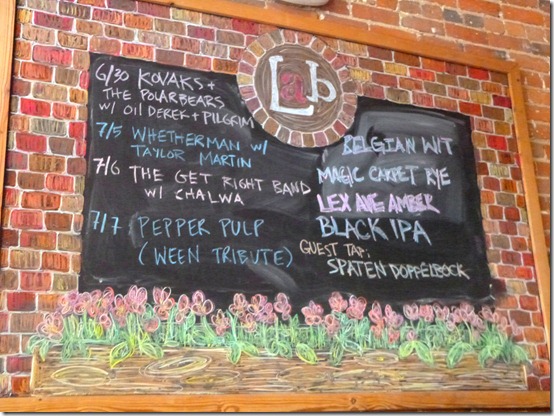 Lab
6/30 KOVAKS +
THE POLARBEARS
W/ OIL DEREK + PILGRIM
7/5 WHETHERMAN W/
TAYLOR MARTIN
7/6 THE GET RIGHT BAND
W/ CHALWA
7/7 PEPPER PULP
(WEEN TRIBUTE)
BELGIAN WIT
MAGIC CARPET RYE
LEX AVE AMBER
BLACK IPA
GUEST TAP:
SPATEN DOPPELBOCK